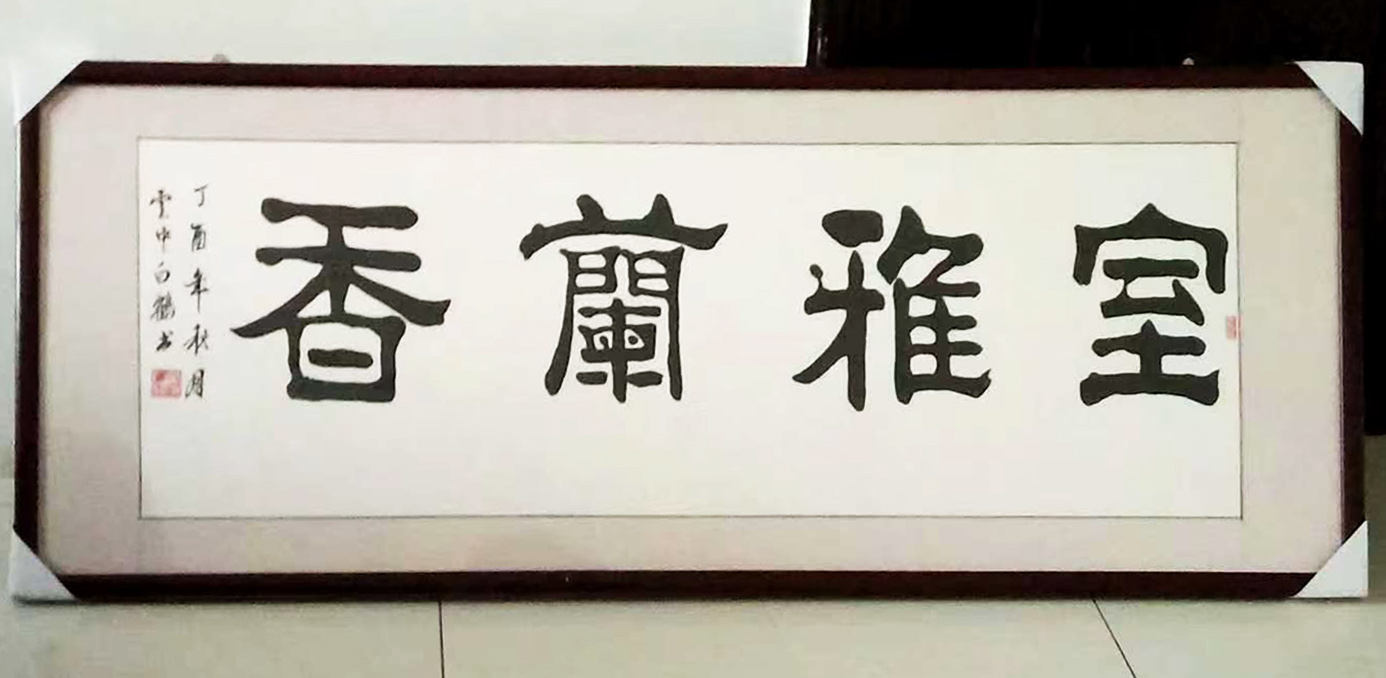 室雅蘭香
丁酉年秋月
雲中白鶴書